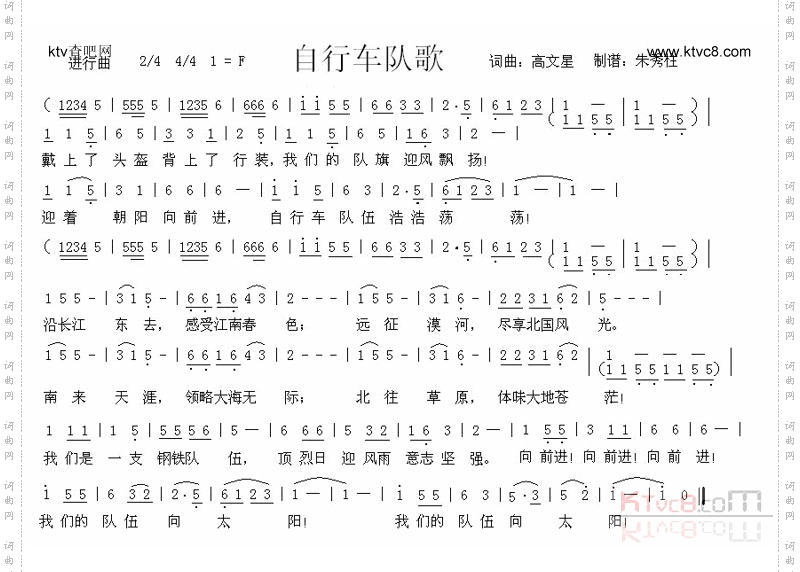 ktv查吧网
自行车队歌
www.ktvc8.com
进行曲 2/4 4/4 1 = F
词曲：高文星 制谱：朱秀柱
( 1234 5 | 555 5 | 1235 6 | 666 6 | i i 5 5 | 6 6 3 3 | 2 · 5 | 6 1 2 3 | 1 — | 1 — |
( 1 1 5 5 | 1 1 5 5 ) |
1 1 5 | 6 5 | 3 3 1 | 2 5 | 1 1 5 | 6 5 | 1 6 3 | 2 — |
戴上了 头盔 背上了 行装,我们的 队旗 迎风飘 扬!
1 1 5 | 3 1 | 6 6 | 6 — | i i 5 | 6 3 | 2 · 5 | 6 1 2 3 | 1 — | 1 — |
迎着 朝阳向前进， 自行车队伍浩浩荡 荡!
( 1234 5 | 555 5 | 1235 6 | 666 6 | i i 5 5 | 6 6 3 3 | 2 · 5 | 6 1 2 3 | 1 — | 1 — |
( 1 1 5 5 | 1 1 5 5 ) |
1 5 5 - | 3 1 5 - | 6 6 1 6 4 3 | 2 - - - | 1 5 5 - | 3 1 6 - | 2 2 3 1 6 1 | 5 - - - |
沿长江 东去， 感受江南春 色； 远征 漠河， 尽享北国风 光。
1 5 5 - | 3 1 5 - | 6 6 1 6 4 3 | 2 - - - | 1 5 5 - | 3 1 6 - | 5 5 5 3 1 2 | 1 - - - | 1 - - - |
( 1 5 5 1 | 1 5 5 1 5 5 ) |
南来 天涯， 领略大海无 际； 北往 草原， 体味大地苍 茫!
1 1 1 | 1 5 | 5 5 5 6 | 5 — | 6 6 6 | 5 3 2 | 5 5 6 | 3 2 | 2 — | 1 5 5 | 3 1 1 | 6 6 | 6 — |
我们是 一支 钢铁队 伍， 顶烈日 迎风雨 意志坚强。向前进!向前进!向前进!
i 5 5 | 6 3 2 | 2 · 5 | 1 — | i 5 5 | 6 2 | 5 · 3 | 5 2 | i — | i — | i 0 ‖
我们的队伍向 太 阳! 我们的队伍向 太 阳!
KTvc8.com
词曲网